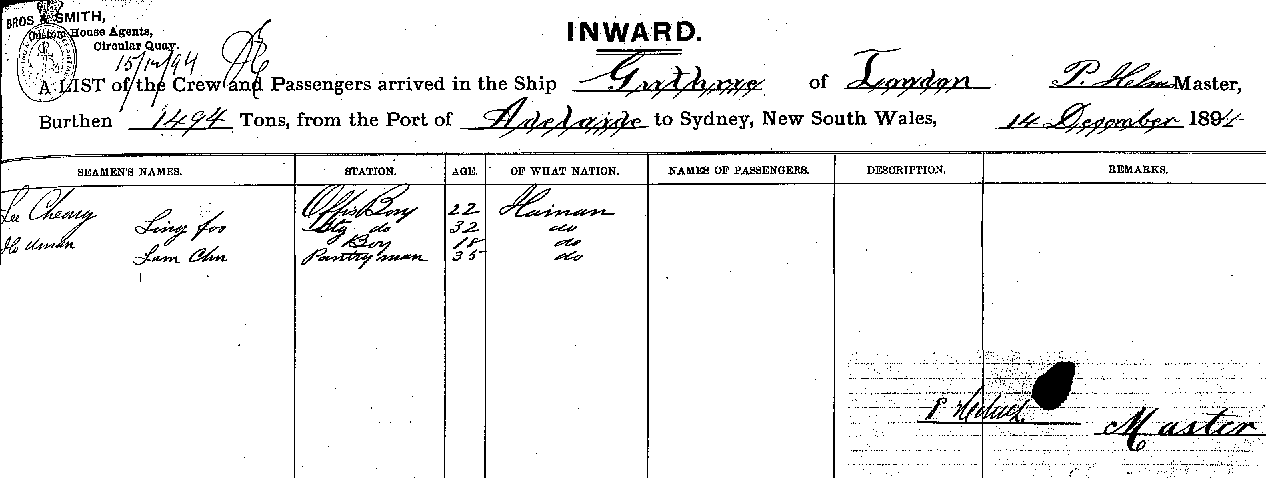 BROS & SMITH,
Custom House Agents,
Circular Quay.
15/12/94
INWARD.
A LIST of the Crew and Passengers arrived in the Ship Guthrie of London P. Helms Master,
Burthen 1494 Tons, from the Port of Adelaide to Sydney, New South Wales, 14 December 1894
SEAMEN'S NAMES. STATION. AGE. OF WHAT NATION. NAMES OF PASSENGERS. DESCRIPTION. REMARKS.
Lee Cheary Boy 22 Hainan
Ling foo do 32 do
Boy 18 do
Lam Chn Pantryman 35 do
P. Helms Master